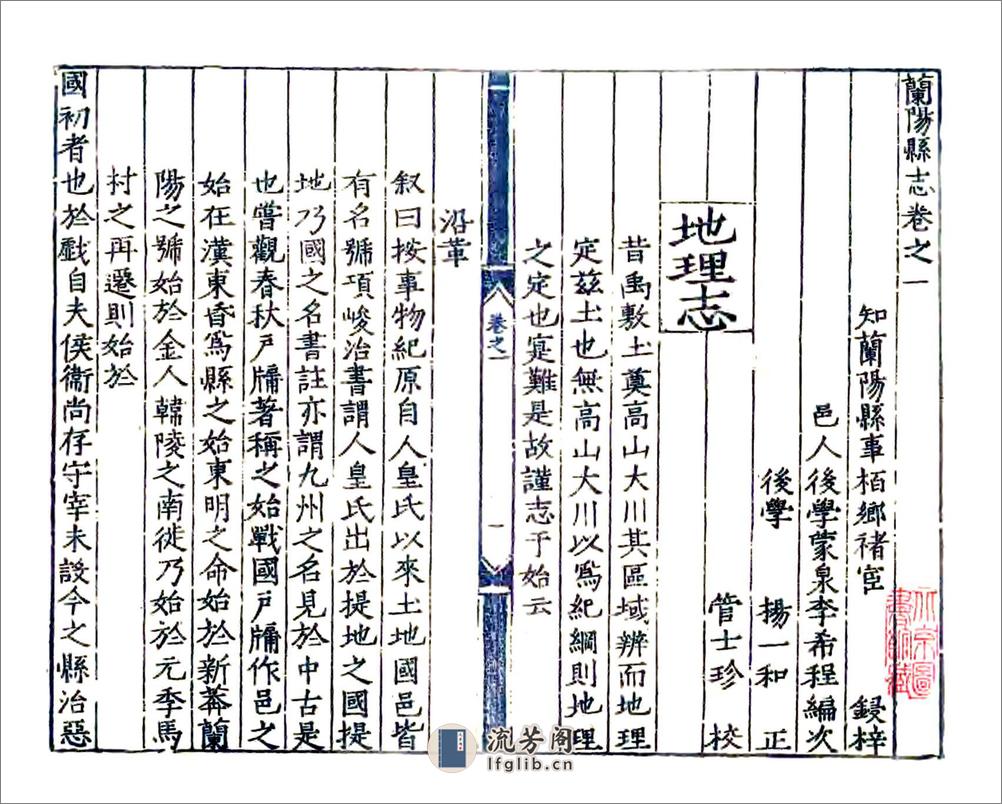 蘭陽縣志卷之一
知蘭陽縣事栢鄉褚宦 鋟梓
邑人後學蒙泉李希程編次
後學 揚一和 正
管士珍 校
地理志
昔禹敷土奠高山大川其區域辨而地理
定兹土也無高山大川以爲紀綱則地理
之定也寔難是故謹志于始云
卷之一
一
沿革
叙曰按事物紀原自人皇氏以來土地國邑皆
有名號項峻治書謂人皇氏出於提地之國提
地乃國之名書註亦謂九州之名見於中古是
也嘗觀春秋户牖著稱之始戰國户牖作邑之
始在漢東昏爲縣之始東明之命始於新莽蘭
陽之號始於金人韓陵之南徙乃始於元季馬
村之再遷則始於
國初者也於戲自夫侯衞尚存守宰未設今之縣治惡
流芳阁
lfglib.cn